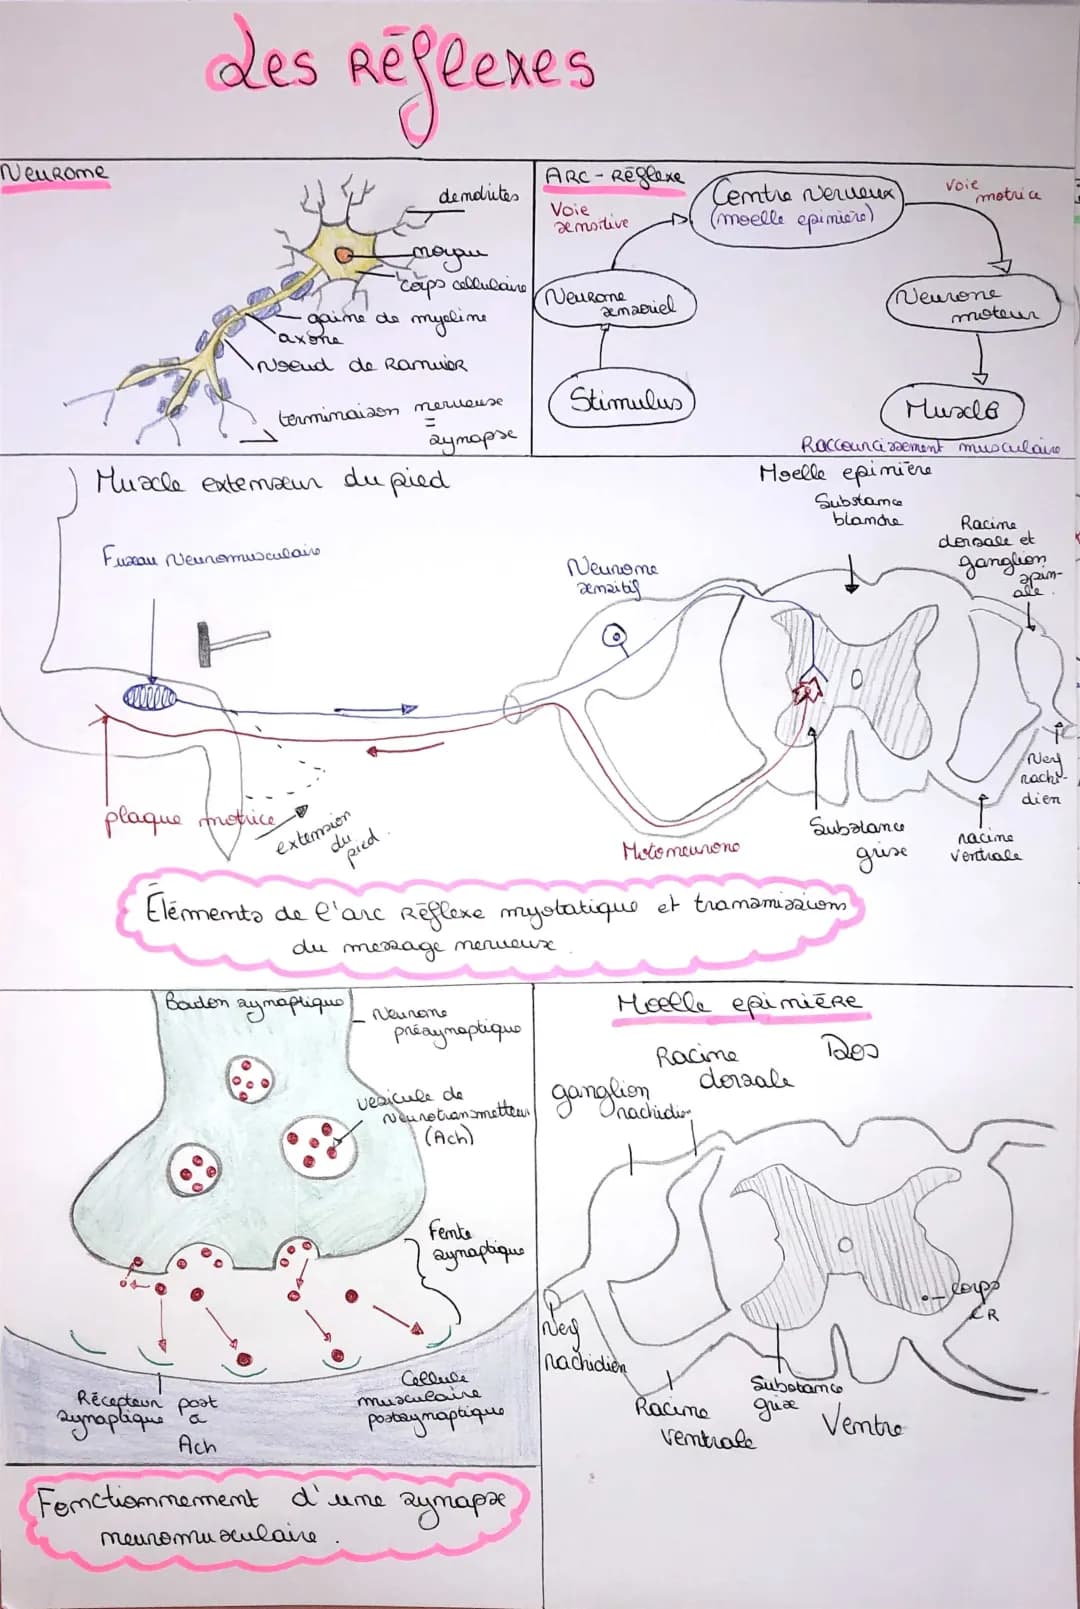 Les Réflexes
Neurone
dendrites
noyau
corps cellulaire
gaine de myeline
axone
Noeud de Ranvier
terminaison nerveuse
=
synapse
ARC-Réflexe
Voie
sensitive
Centre Nerveux
(moelle epinière)
Voie
motrice
Neurone
sensoriel
Neurone
moteur
Stimulus
Muscle
Raccourcissement musculaire
Muscle extenseur du pied
Fuseau Neuromusculaire
Moelle epinière
Substance
blanche
Racine
dorsale et
ganglion
spin-
ale.
Neurone
sensitif
plaque motrice
extension
du
pied.
Motoneurone
Substance
grise
racine
ventrale
Nerf
rachi-
dien
Eléments de l'arc Réflexe myotatique et transmissions
du message nerveux.
Bouton synaptique
Neurone
présynaptique
vesicule de
Neurotransmetteur
(Ach)
Fente
synaptique
Récepteur post
synaptique à
Ach
Cellule
musculaire
postsynaptique
Fonctionnement d'une synapse
neuromusculaire.
Moelle epinière
Racine
dorsale
Dos
ganglion
rachidien
corps
CR
Nerf
rachidien
Racine
ventrale
Substance
grise
Ventre